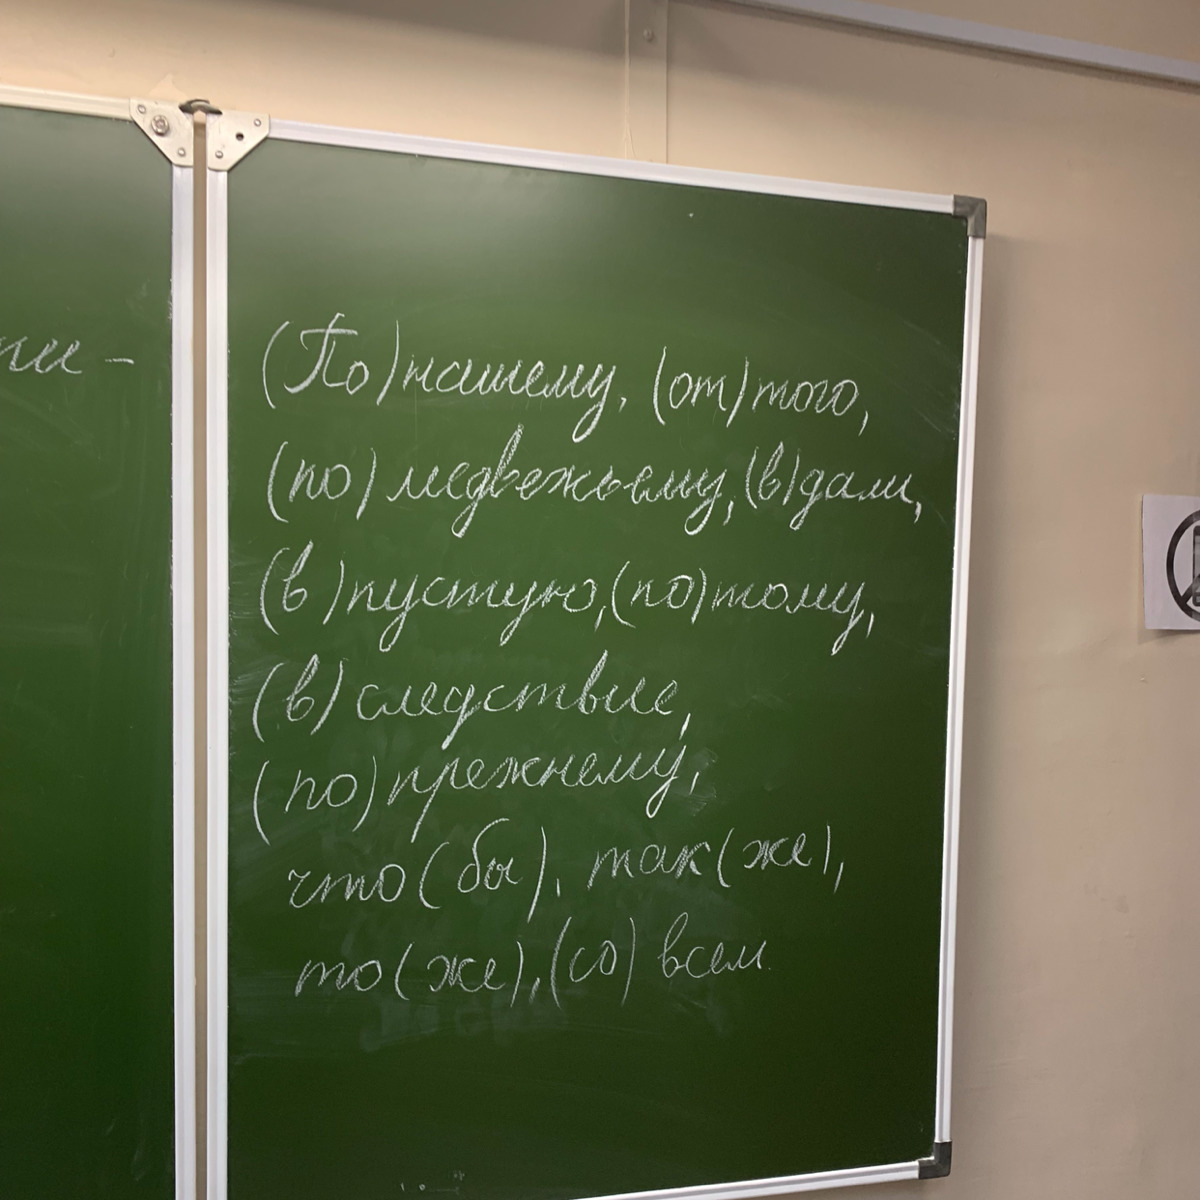 (По)нашему, (от)того,
(по)медвежьему, (в)дали,
(в)пустую, (по)тому,
(в)следствие,
(по)прежнему,
что(бы), так(же),
то(же), (со)всем.